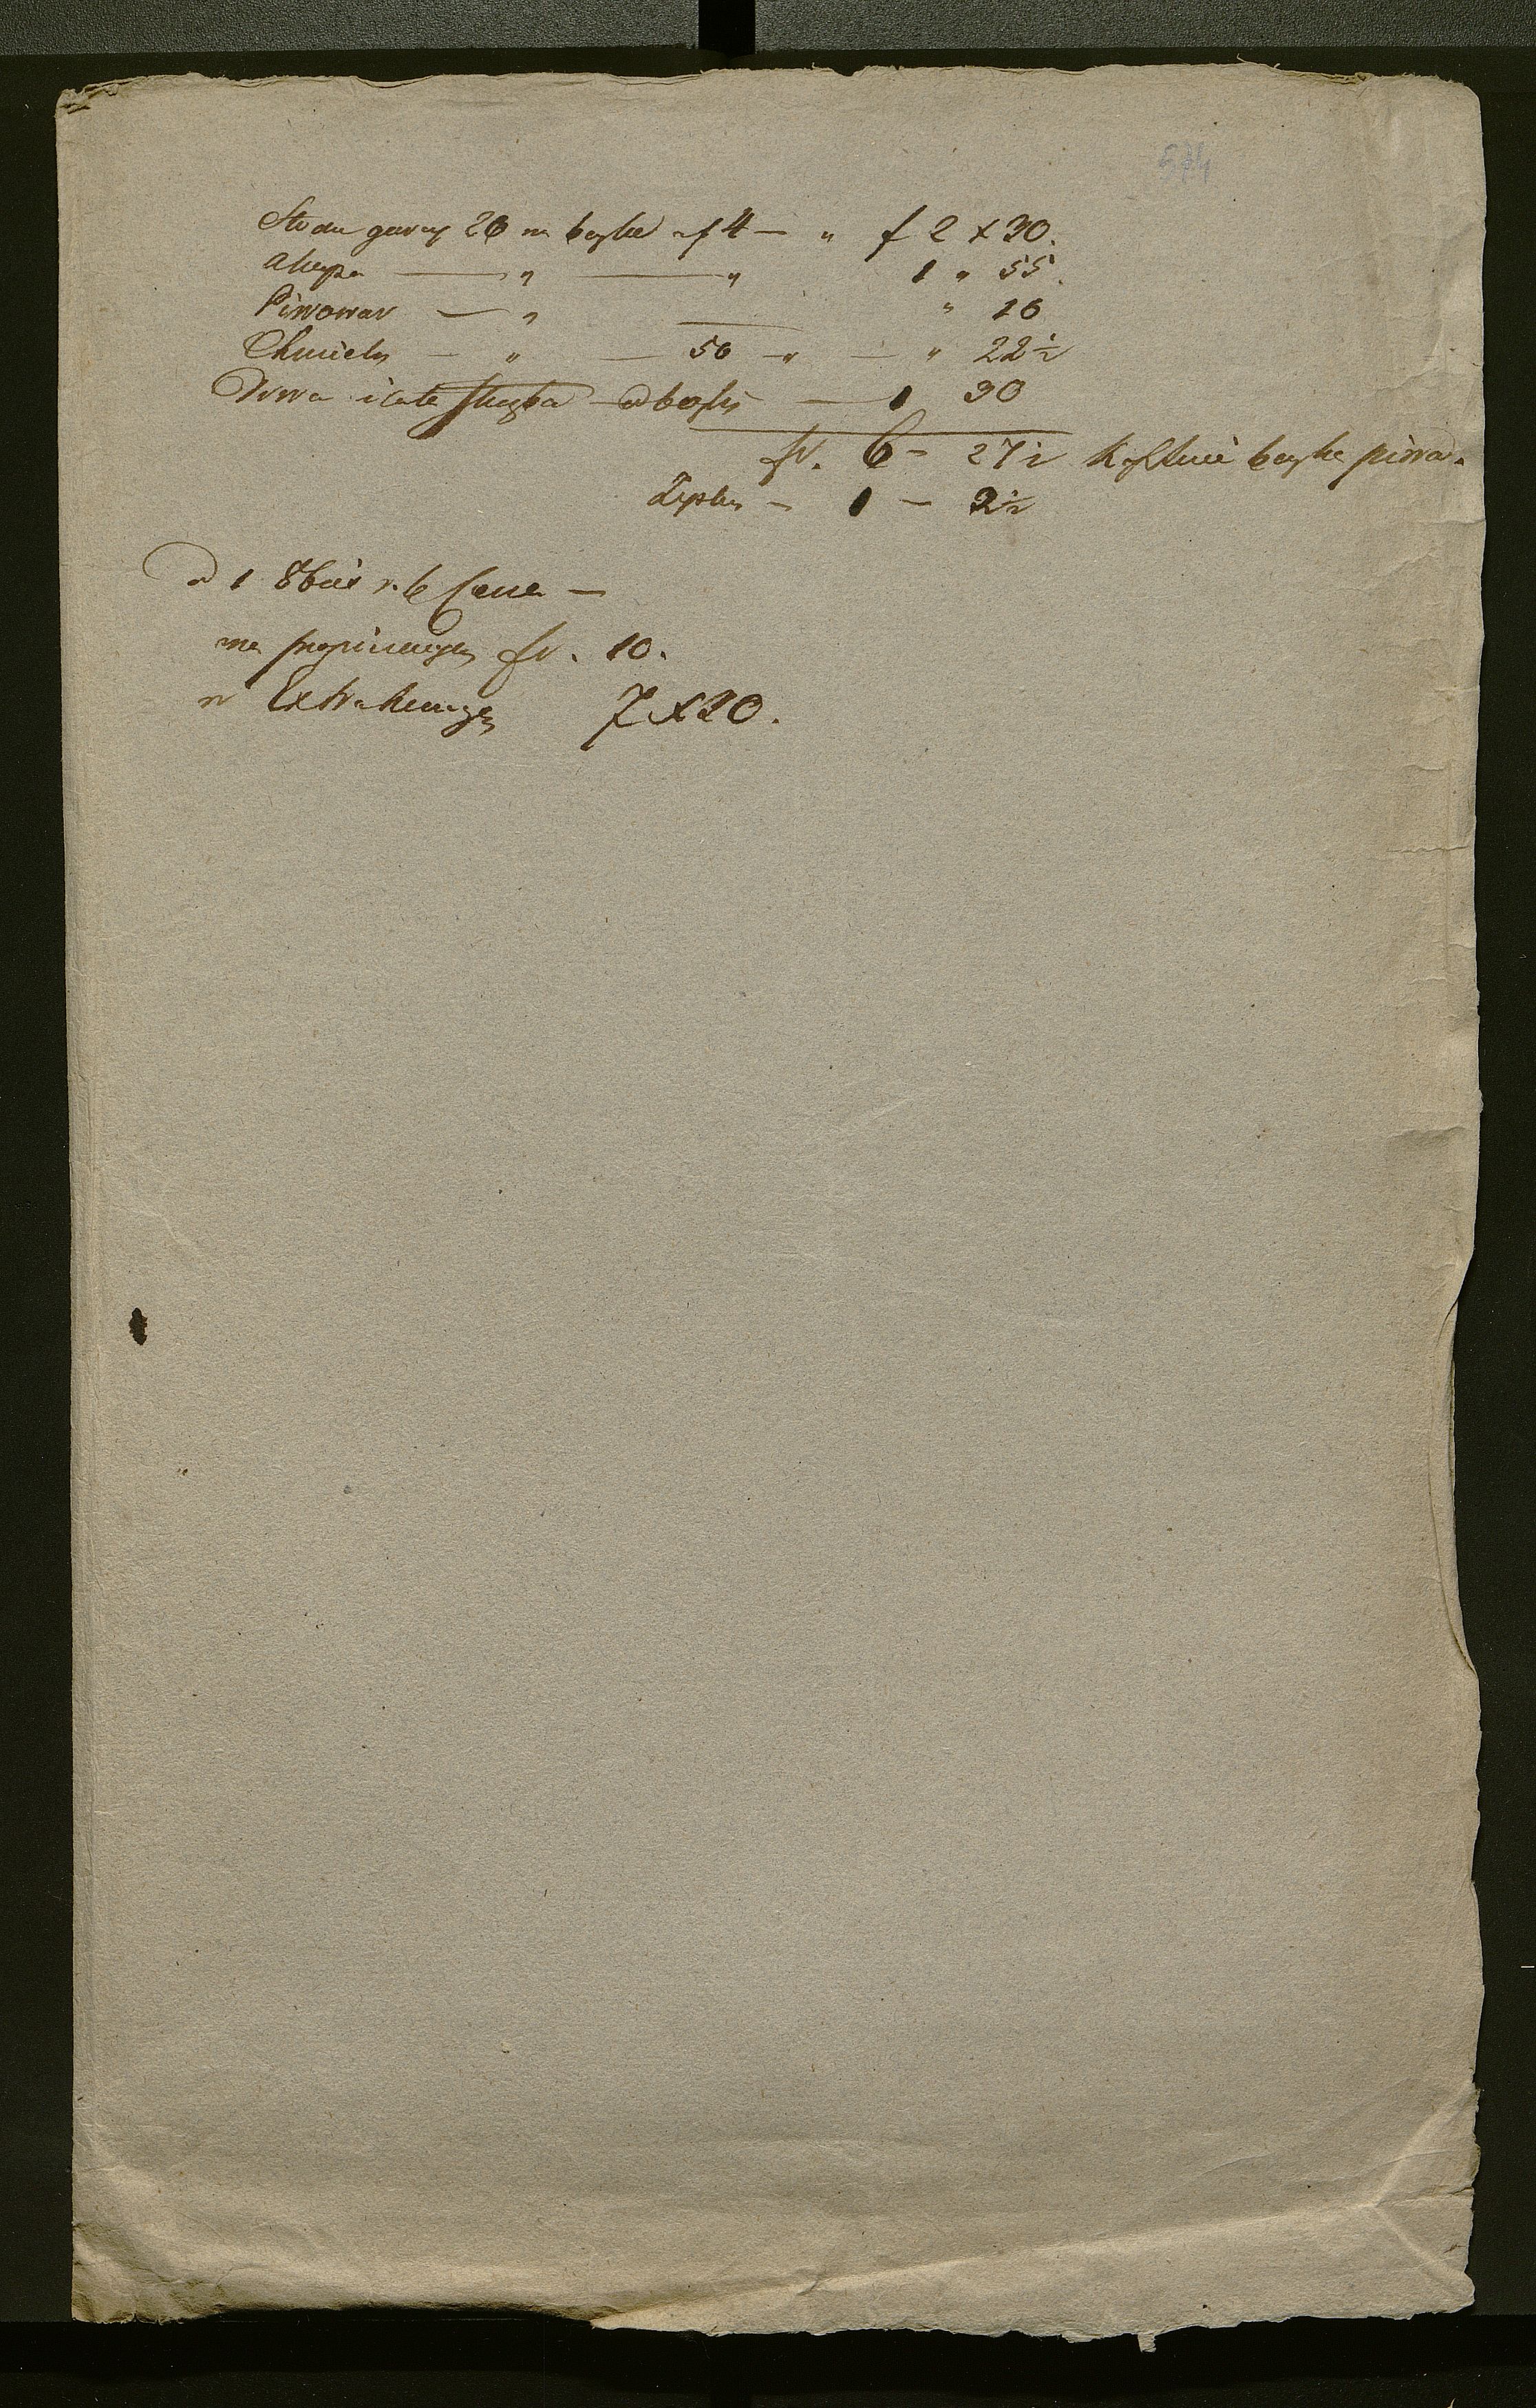 574
Słodu garcy 20 na beczkę af 4 — " f 2 x 30.
Akcyza — " — " 1 " 55.
Piwowar — " — " 10
Chmielu — " — 50 — " — " 22½
Drwa i cała służba od beczki — 1 30
fr. 6 — 27½ Kosztuie beczka piwa.
Zysku — 1 — 2½
Cena —
na propinacyą fr. 10.
w Extrakuacyą 7 x 30.